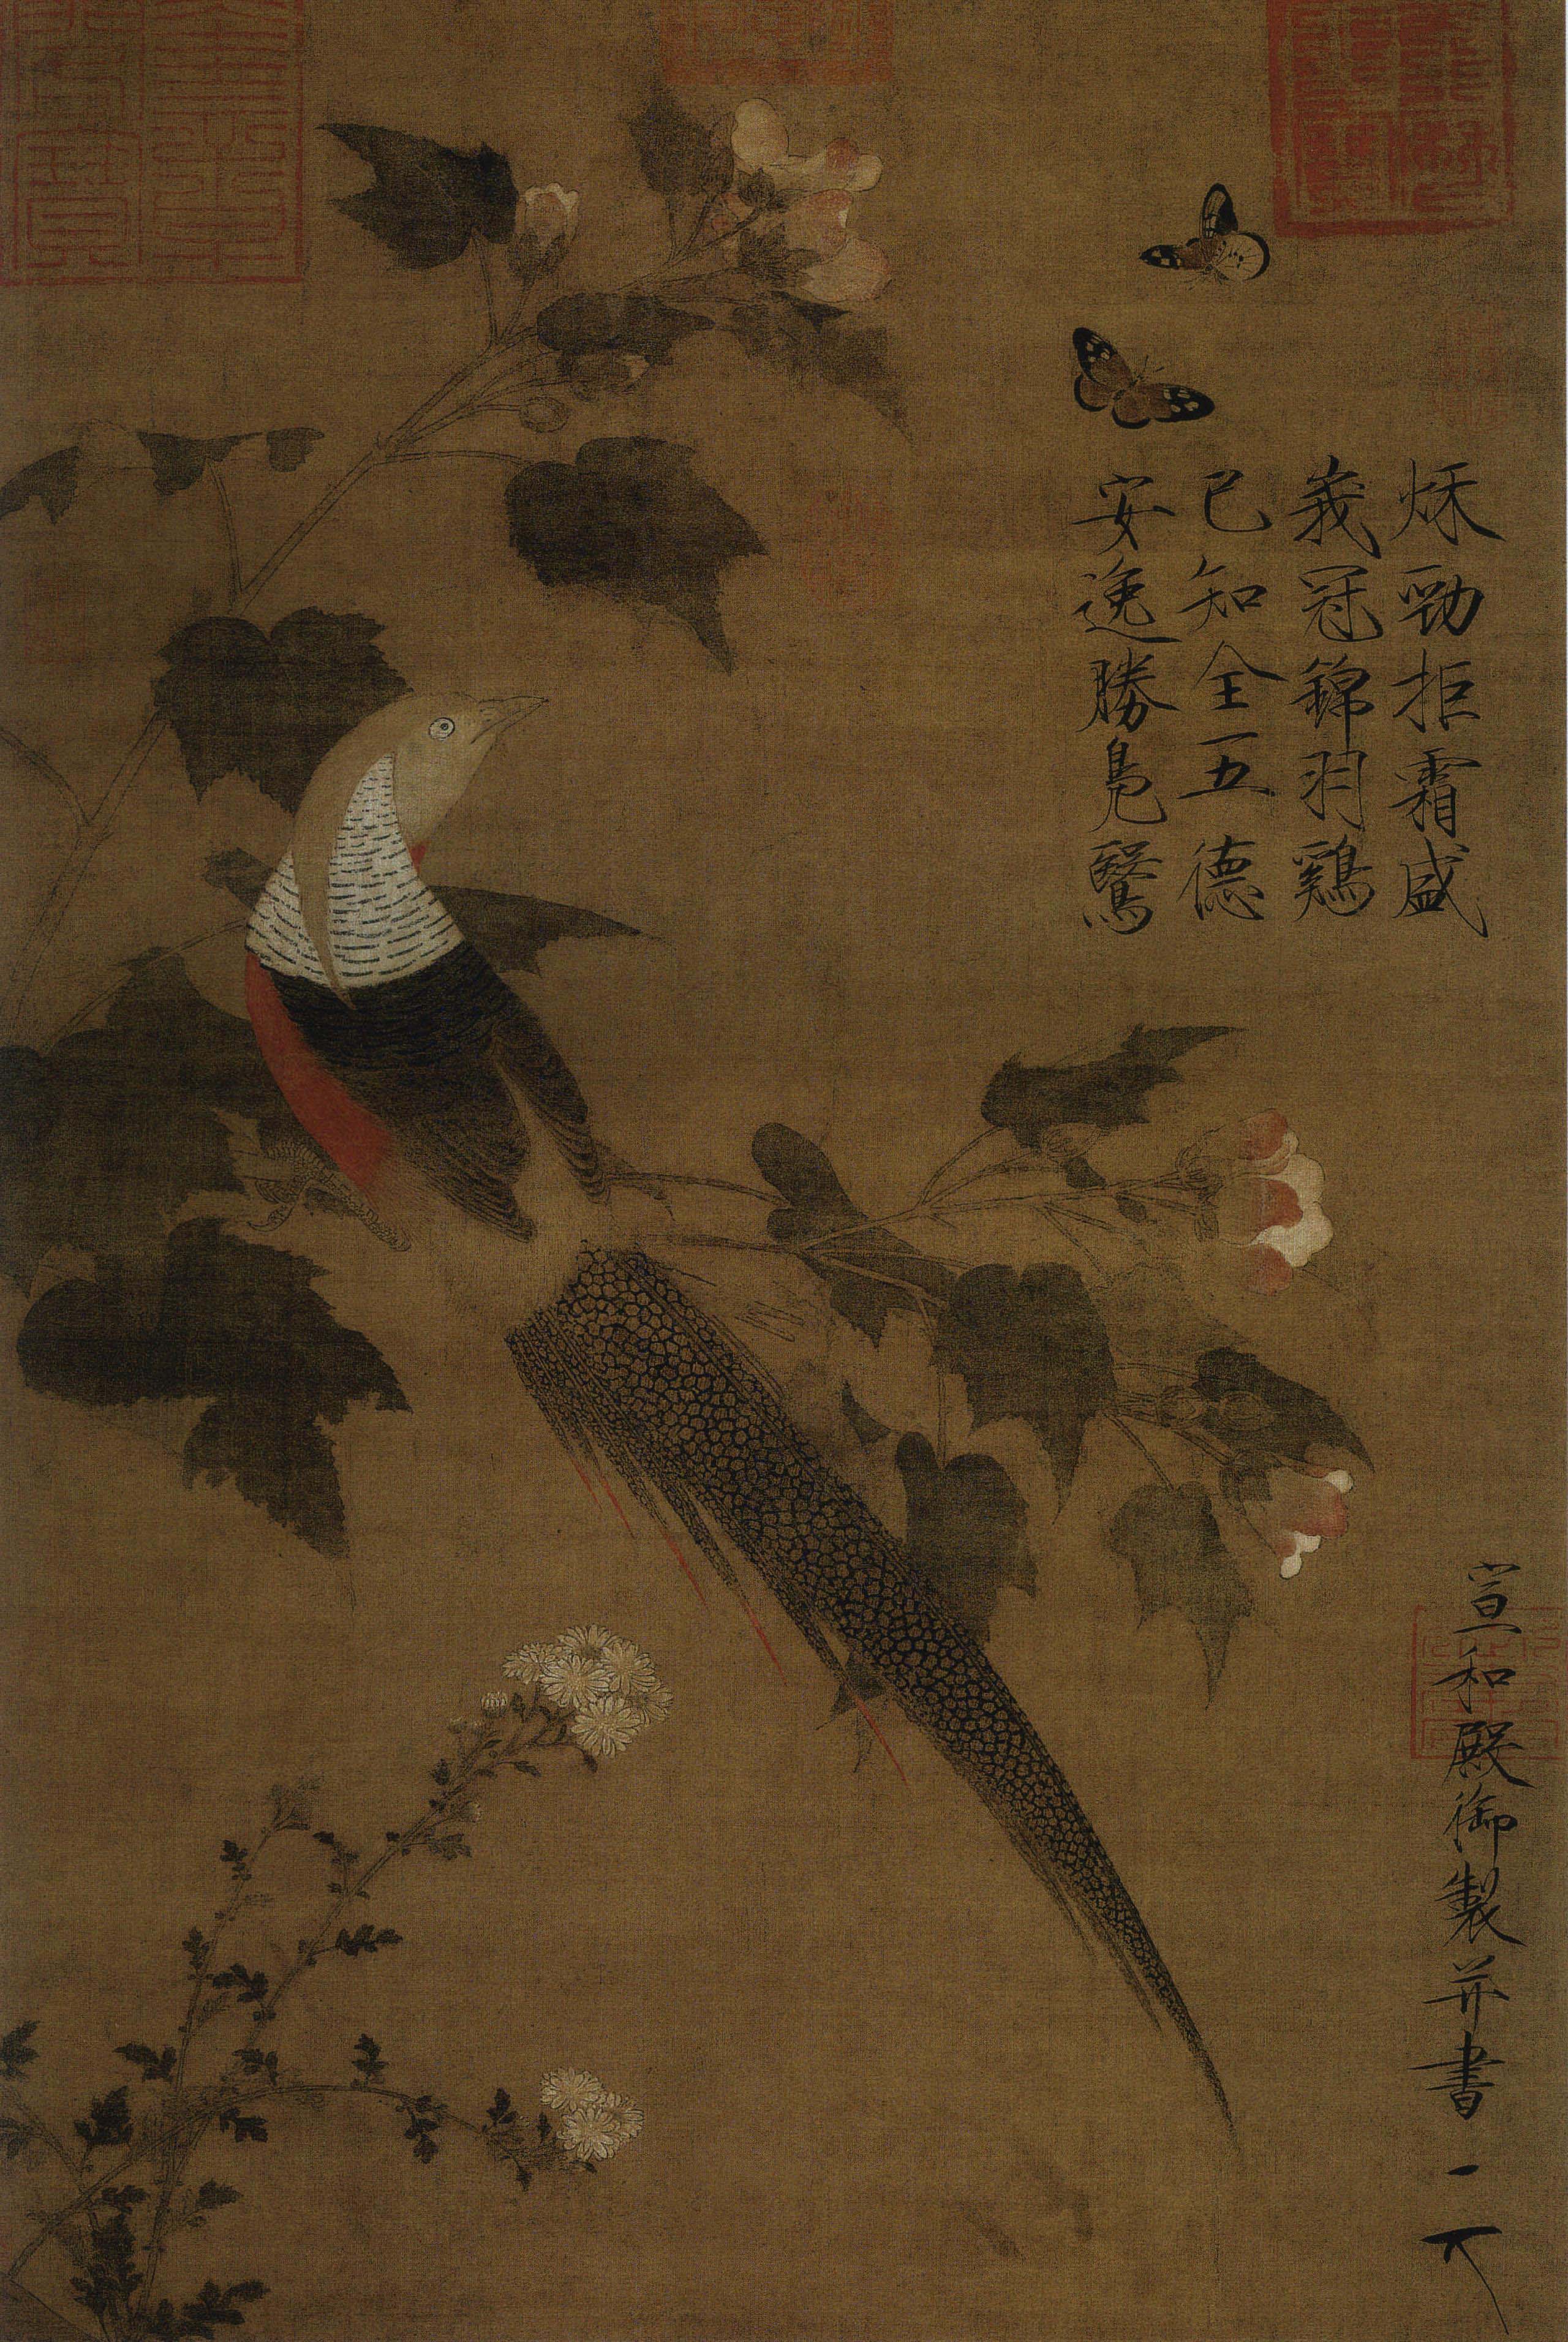 秌勁拒霜盛
峩冠錦羽鷄
已知全五德
安逸勝鳧鷖
宣和殿御製并書
天下一人